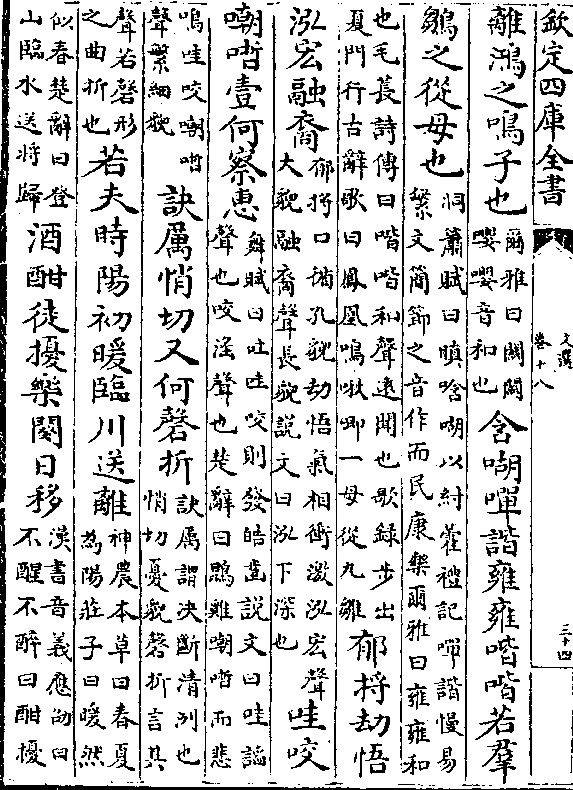 欽定四庫全書
文選
卷十八
三十四
離鴻之鳴子也
爾雅曰關關
嚶嚶音和也
含㗅嘽諧雍雍喈喈若羣
雛之從母也
洞簫賦曰瞋㖤㗅以紆鬱禮記嘽諧慢易
繁文簡節之音作而民康樂爾雅曰雍雍和
也毛萇詩傳曰喈喈和聲遠聞也歌録步出
夏門行古辭歌曰鳳凰鳴啾啾一母從九雛
郁捋劫悟
泓宏融裔
郁捋口循孔貌劫悟氣相衝激泓宏聲
大貌融裔聲長貌説文曰泓下深也
哇咬
嘲哳壹何察惠
舞賦曰吐哇咬則發皓齒説文曰哇謳
聲也咬淫聲也楚辭曰鵾雞嘲哳而悲
鳴哇咬嘲哳
聲繁細貌
訣厲悄切又何磬折
訣厲謂決斷清列也
悄切憂貌磬折言其
聲若磬形
之曲折也
若夫時陽初暖臨川送離
神農本草曰春夏
為陽莊子曰暖然
似春楚辭曰登
山臨水送將歸
酒酣徒擾樂闋日移
漢書音義應劭曰
不醒不醉曰酣擾